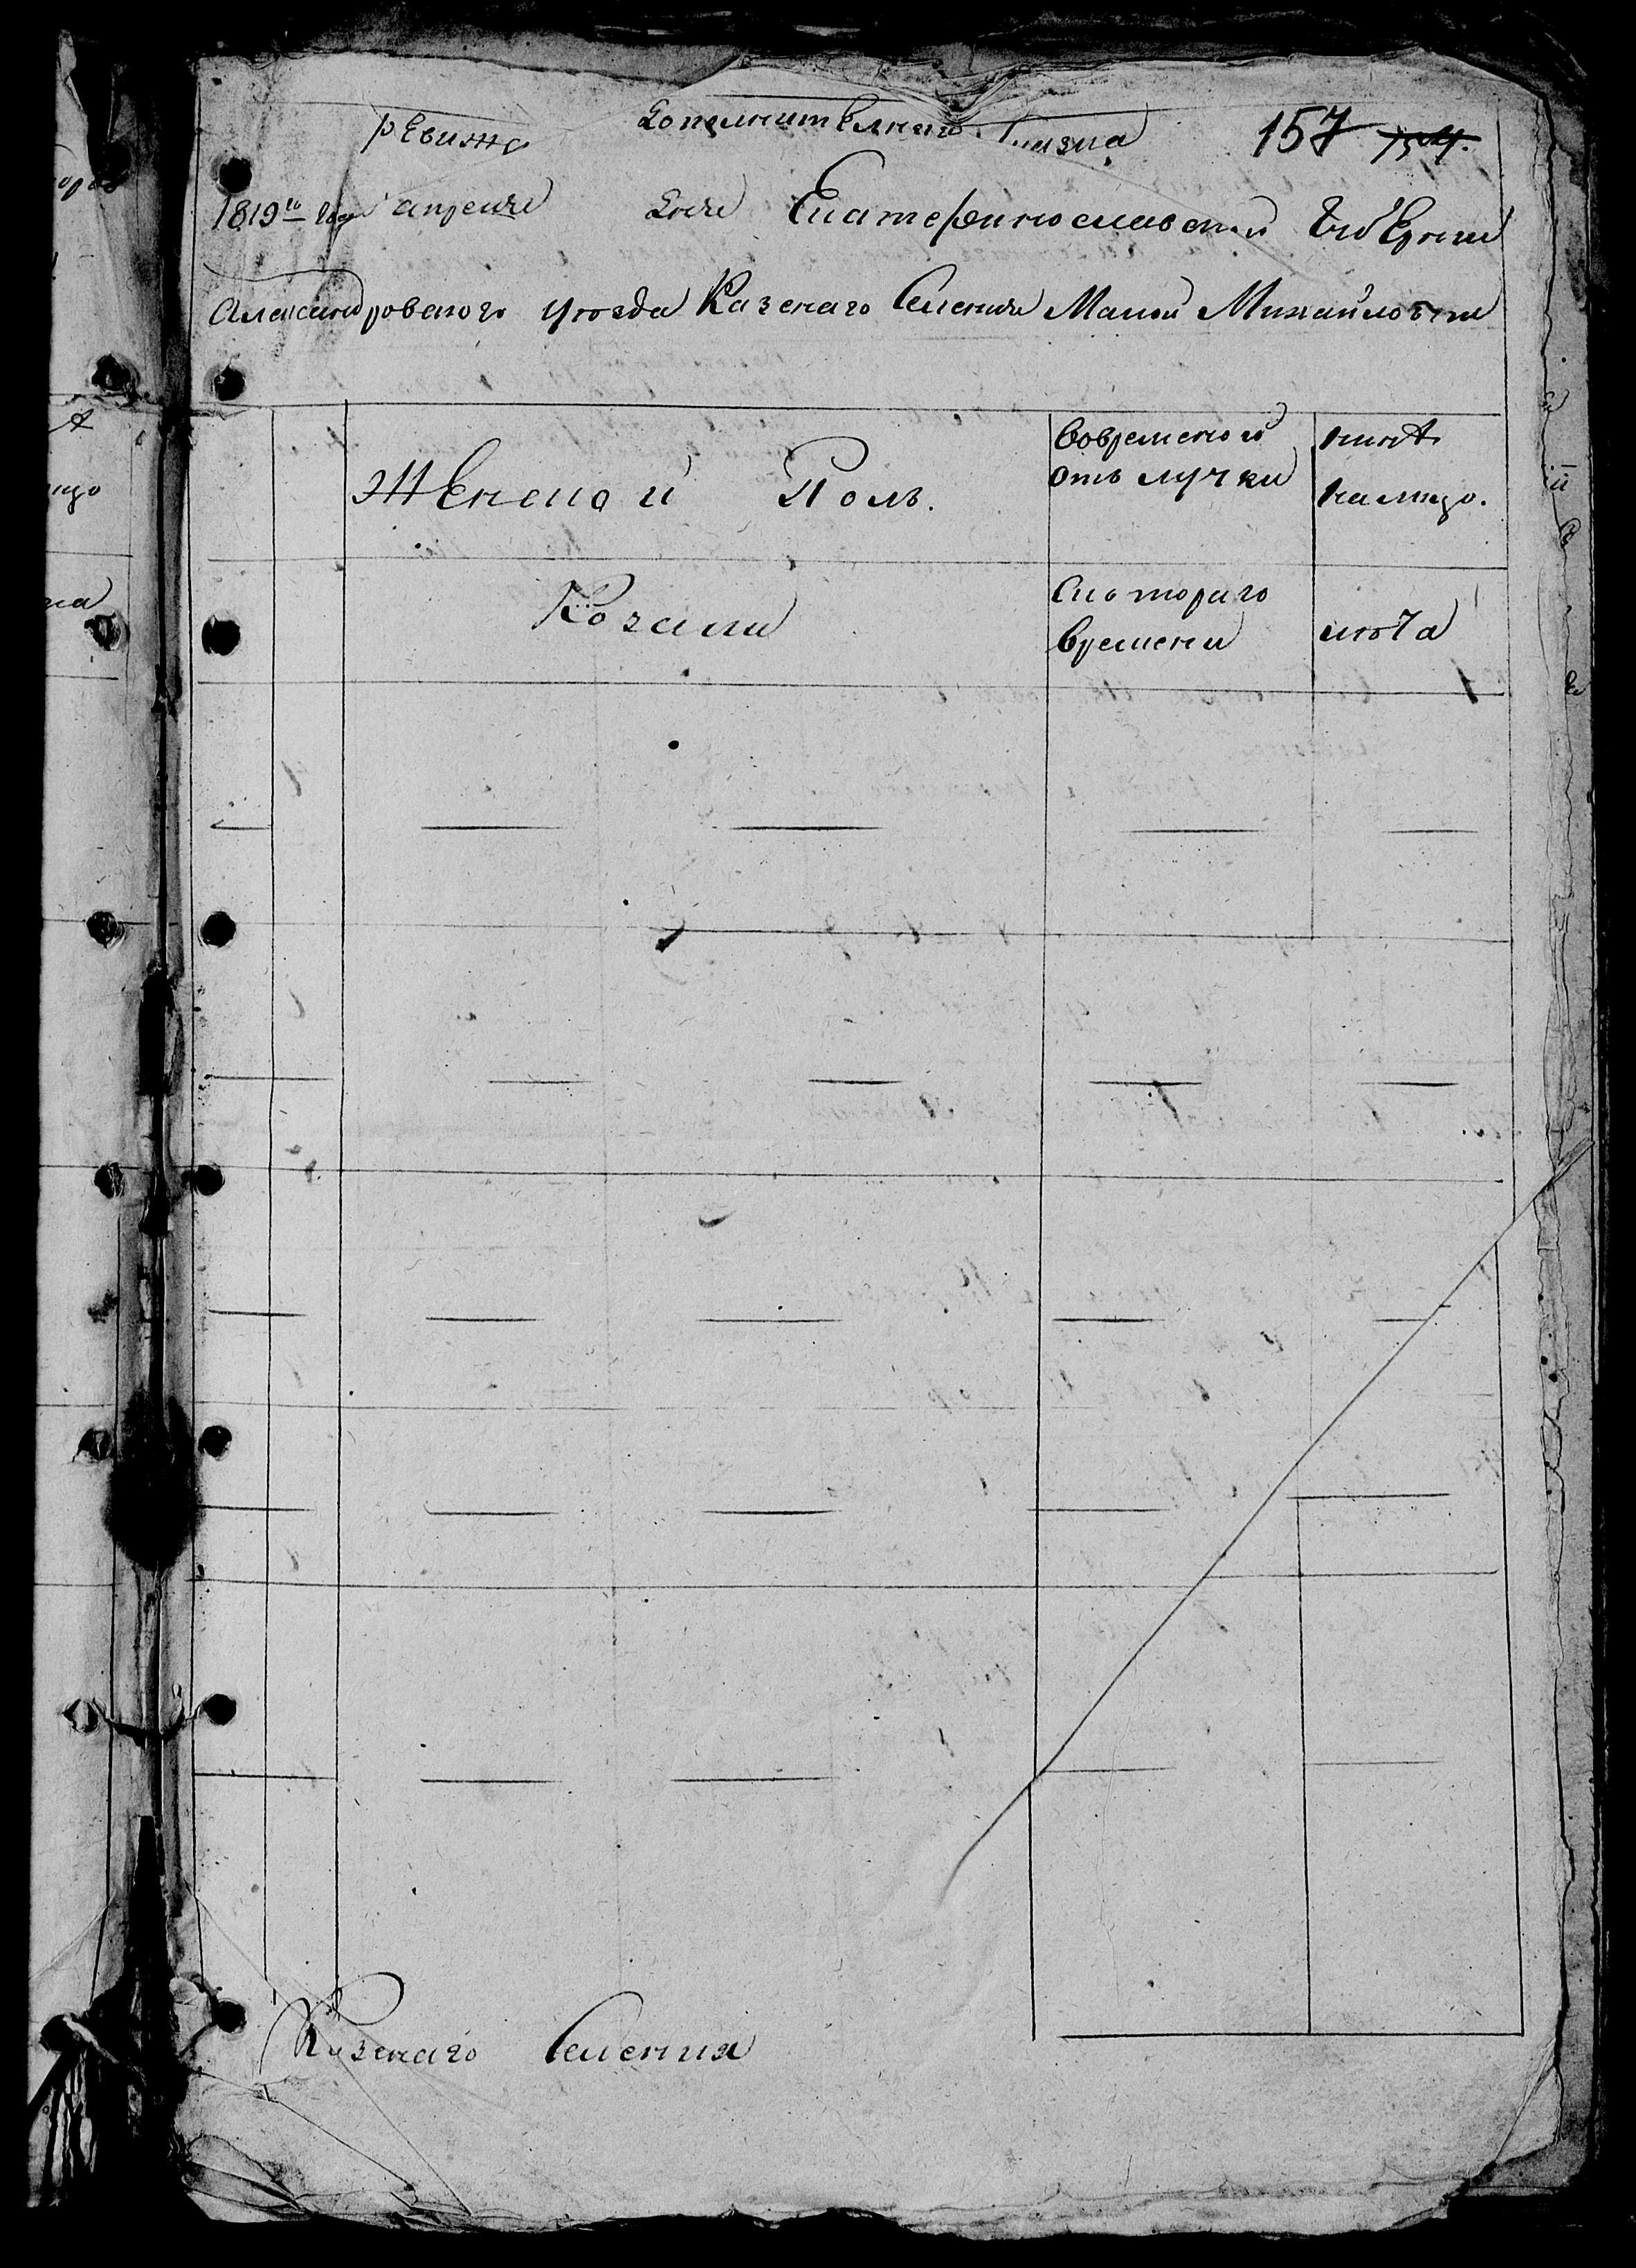 ревижс дополнителнаго сказка 157
1819го года апреля дня Екатеринославской Губернии
Александровского уезда Казенаго Селения Малой Михайловки
Женской Полъ. Вовременой отълучки ныне на лицо.
Козаки Скотораго времени лѣта
Казенаго Селения